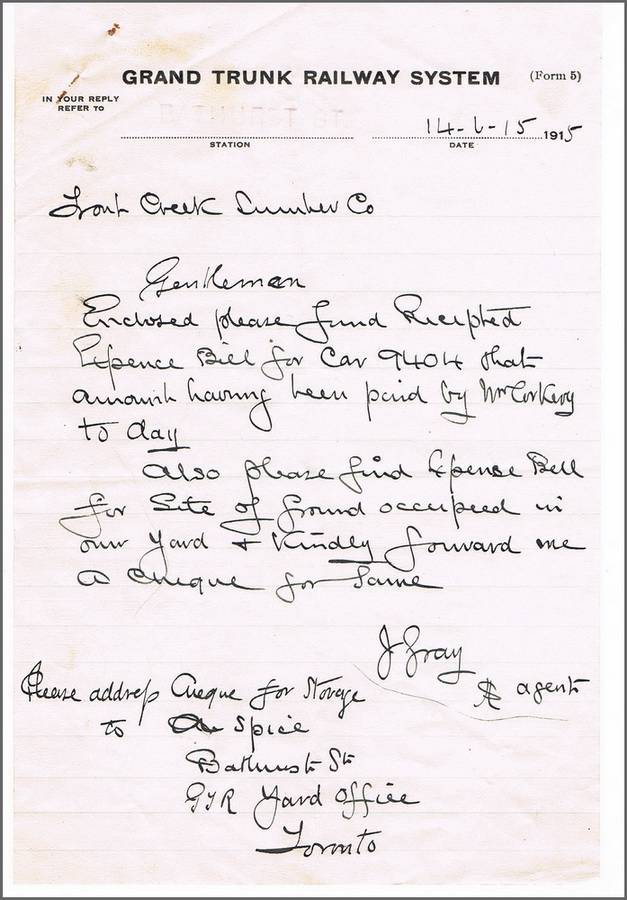 GRAND TRUNK RAILWAY SYSTEM (Form 5)
IN YOUR REPLY
REFER TO
14-6-15 1915
STATION DATE
Trout Creek Lumber Co
Gentleman
Enclosed please find Recipted
Expence Bill for Car 9404 that
amount having been paid by Mr Corkery
to day
Also please find Expense Bill
for Site of Ground occupied in
our Yard + Kindley forward me
a cheque for Same
J Gray
agent
Please address Cheque for Storage
to Spice
Bathurst St
GTR Yard Office
Toronto